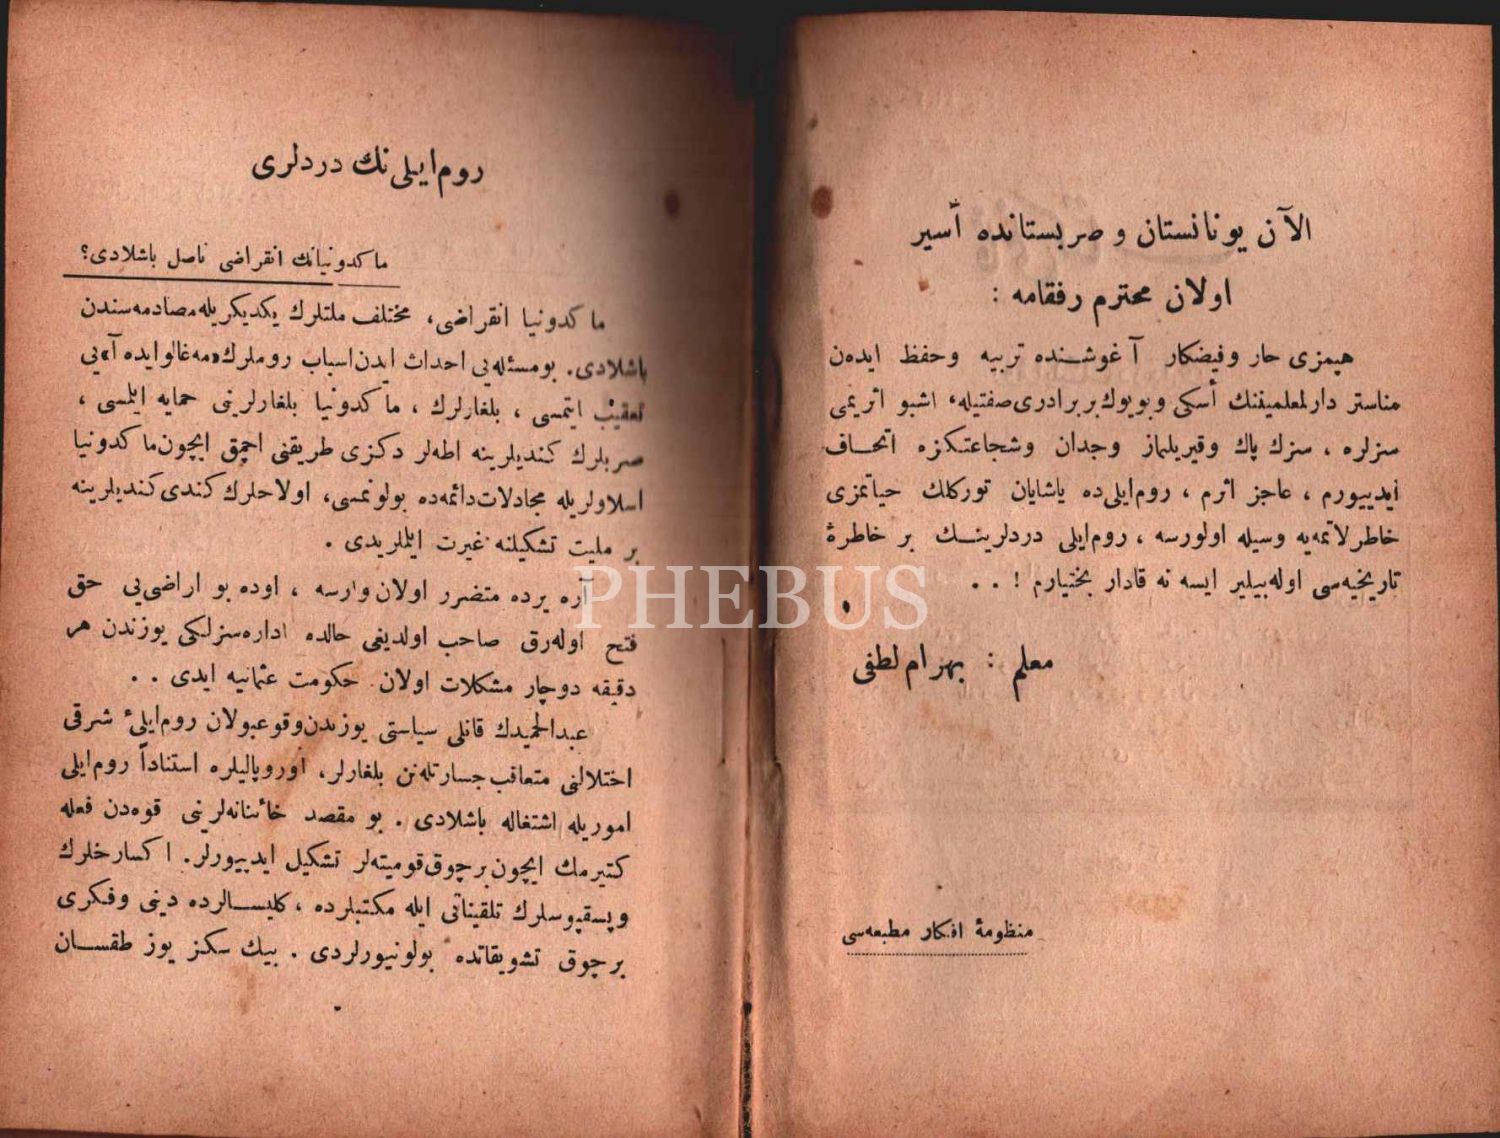 الآن يونانستان و صربستانده أسير
اولان محترم رفقامه :
هپمزى حار وفيضكار آغوشنده تربيه وحفظ ايدەن
مناستر دارلمعلميننك أسكى وبويوك بربرادرى صفتيله، اشبو اثريمى
سزلره ، سزك پاك وقيريلماز وجدان وشجاعتكزه اتحاف
ايدييورم ، عاجز اثرم ، روم‌ايلى‌ده ياشايان توركلك حياتمزى
خاطرلاتمه‌يه وسيله اولورسه ، روم‌ايلى دردلرينك بر خاطرۀ
تاريخيه‌سى اوله‌بيلير ايسه نه قادار بختيارم ! . .
معلم : بهرام لطفى
منظومۀ افكار مطبعه‌سى
روم‌ايلى‌نك دردلرى
ماكدونيانك انقراضى ناصل باشلادى؟
ماكدونيا انقراضى، مختلف ملتلرك يكديكريله مصادمه‌سندن
باشلادى. بومسئله‌يى احداث ايدن اسباب روملرك«مه‌غالو ايده آ»يى
تعقيب ايتمسى ، بلغارلرك ، ماكدونيا بلغارلرينى حمايه ايلمسى ،
صربلرك كنديلرينه اطه‌لر دكزى طريقنى احمق ايچون ماكدونيا
اسلاولريله مجادلات دائمه‌ده بولونمسى، اولاحلرك كندى كنديلرينه
بر مليت تشكيلنه غيرت ايلملريدى .
آره يرده متضرر اولان وارسه ، اوده بو اراضى‌يى حق
فتح اوله‌رق صاحب اولديغى حالده اداره‌سزلكى يوزندن هر
دقيقه دوچار مشكلات اولان حكومت عثمانيه ايدى . .
عبدالحميدك قانلى سياستى يوزندن وقوعبولان روم‌ايلئ شرقى
اختلالنى متعاقب جسارتله‌نن بلغارلر، اوروپاليلره استناداً روم‌ايلى
اموريله اشتغاله باشلادى . بو مقصد خائنانه‌لرينى قوه‌دن فعله
كتيرمك ايچون برچوق قوميته‌لر تشكيل ايدييورلر. اكسارخلرك
وپسقپوسلرك تلقيناتى ايله مكتبلرده ، كليسالرده دينى وفكرى
برچوق تشويقاتده بولونيورلردى . بيك سكز يوز طقسان
PHEBUS